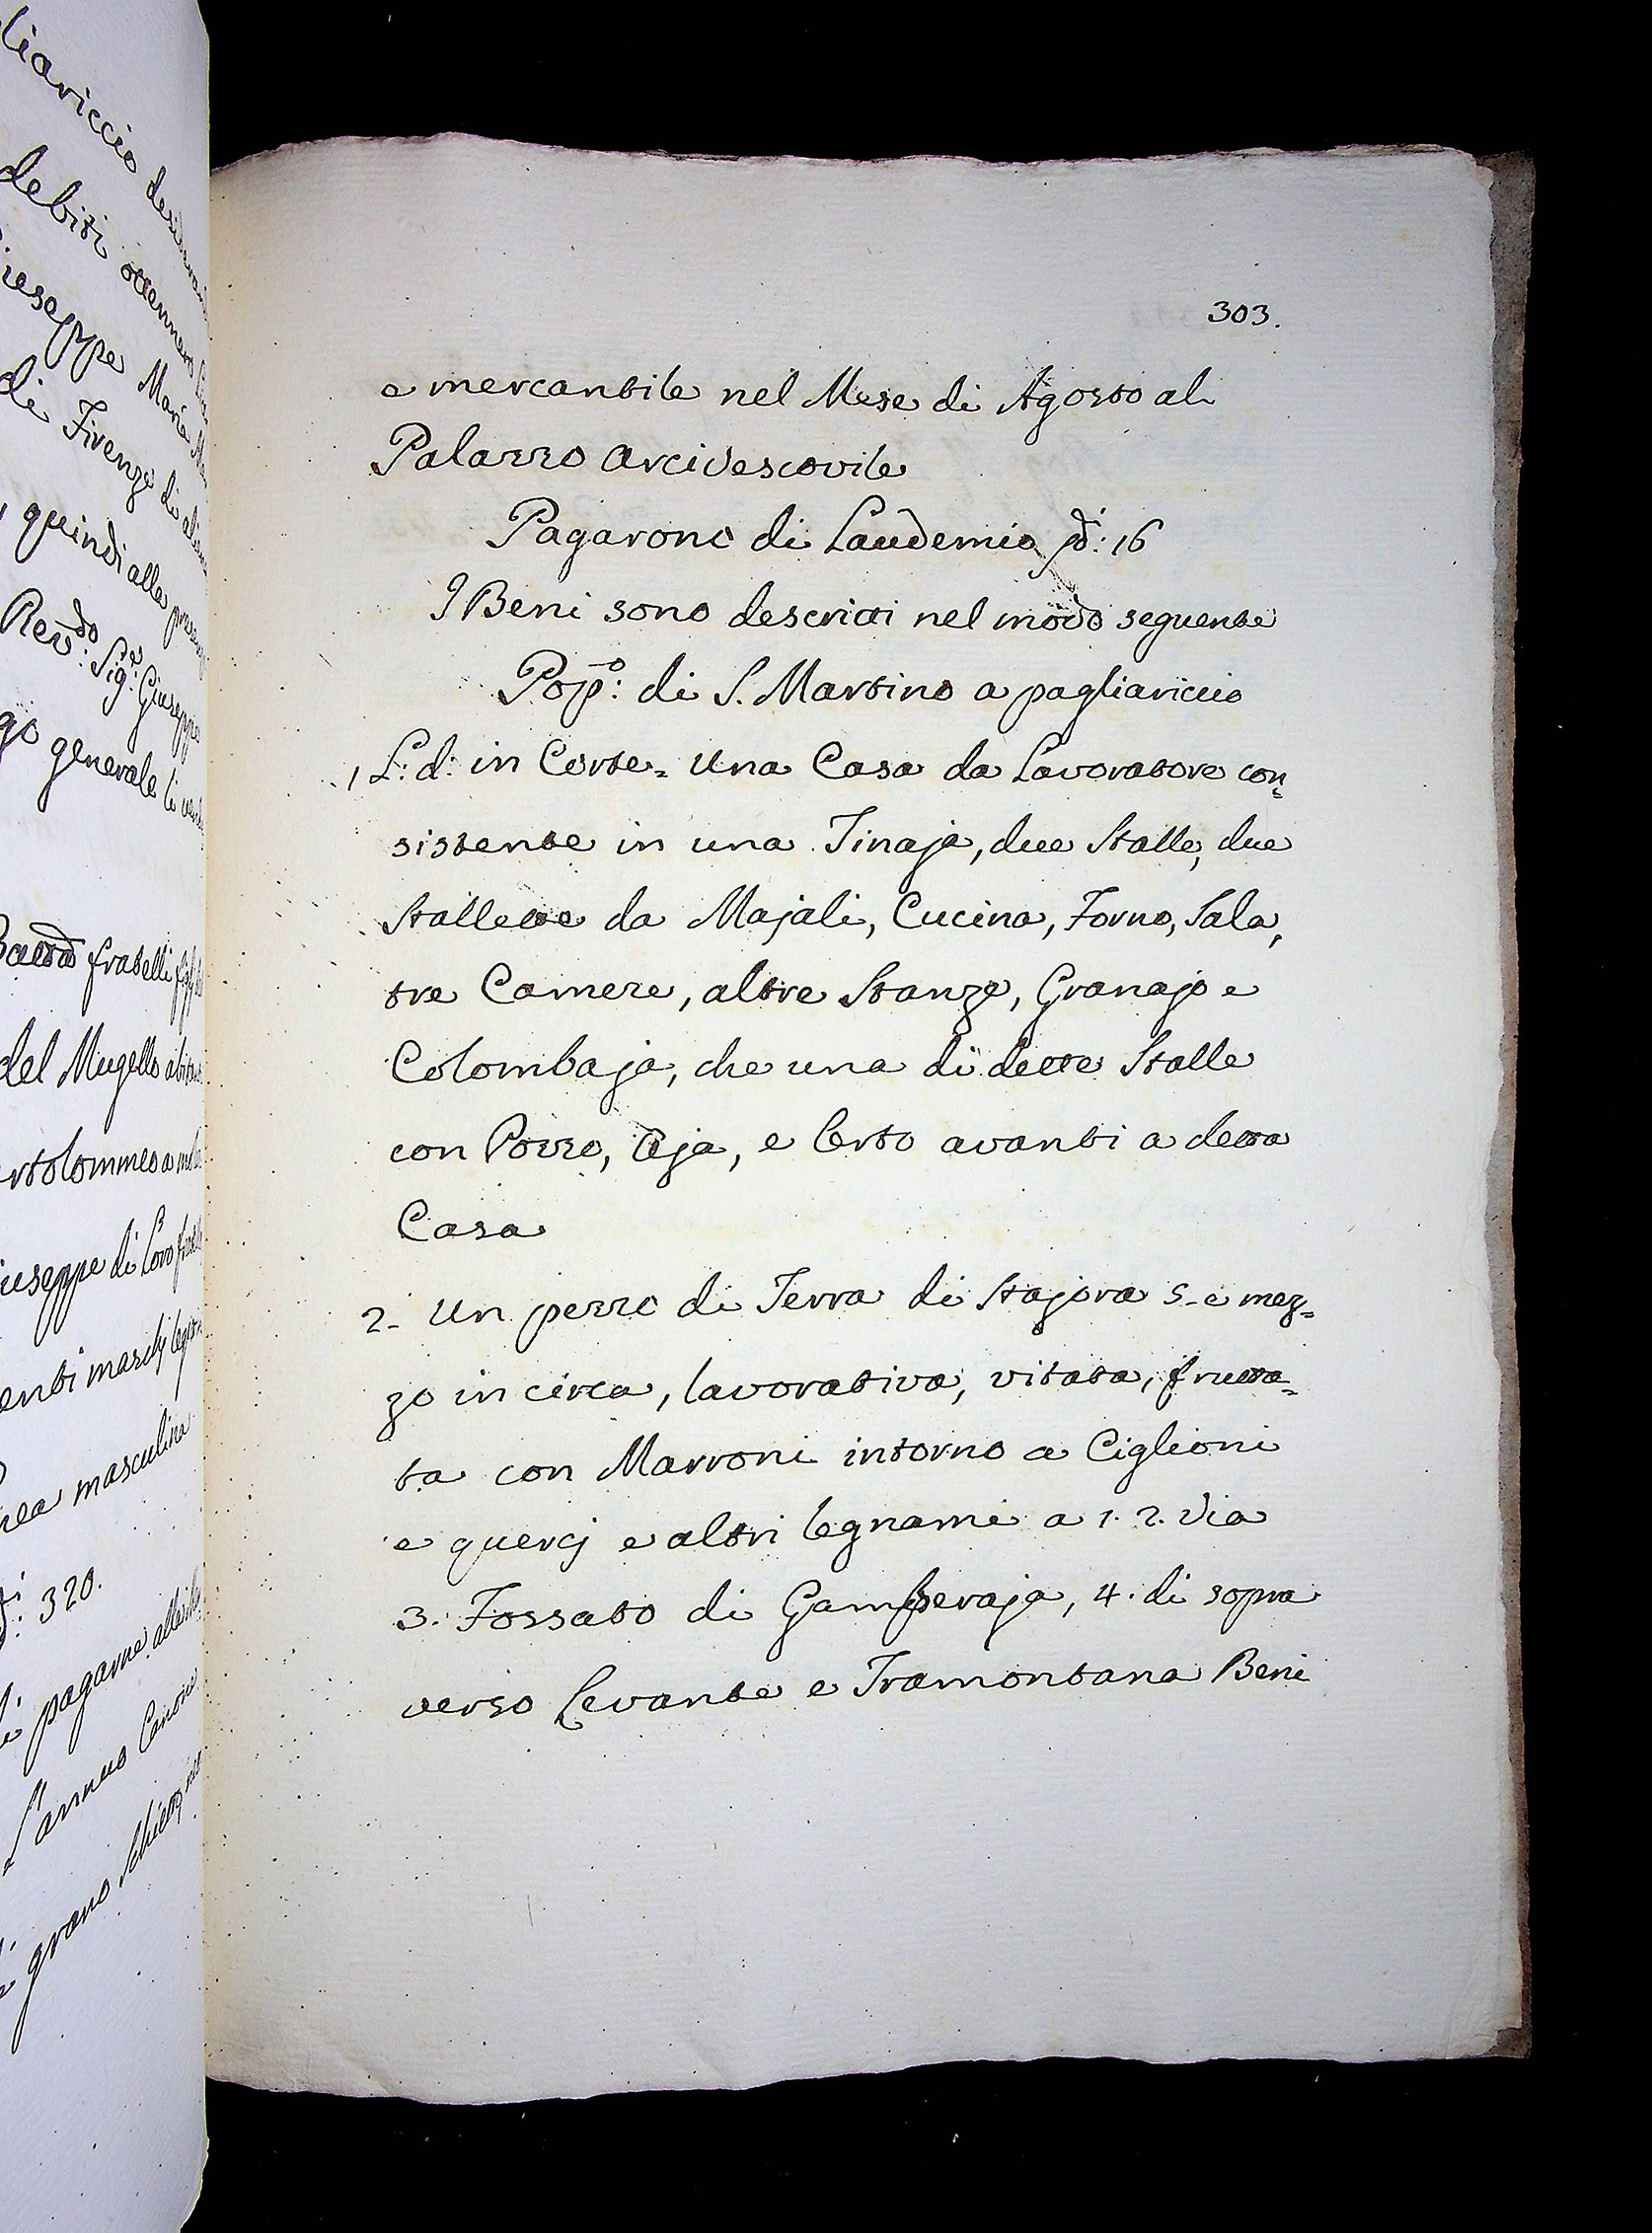 liariccio
debiti ottennero
iuseppe Maria
di Firenze di
quindi alla
Rev:do Sig:e Giuseppe
go generale li
fratelli
del Mugello
rtolommeo a
iuseppe di Loro
enti maschj
nea masculina
: 320.
pagarne alle
L'annuo Canone
grano
303.
e mercantile nel Mese di Agosto al
Palazzo Arcivescovile
Pagarono di Laudemio :16
I Beni sono descritti nel modo seguente
Pop:o di S. Martino a pagliariccio
1 L: d: in Corte = Una Casa da Lavoratore con=
sistente in una Tinaja, due Stalle, due
Stallette da Majali, Cucina, Forno, Sala,
tre Camere, altre Stanze, Granajo e
Colombaja, che una di dette Stalle
con Pozzo, Aja, e Orto avanti a detta
Casa
2- Un pezzo di Terra di Stajora 5- e mez=
zo in circa, lavorativa, vitata, frutta=
ta con Marroni intorno a Ciglioni
e quercj e altri legnami a 1. 2. Via
3. Fossato di Gamberaja, 4. di sopra
verso Levante e Tramontana Beni